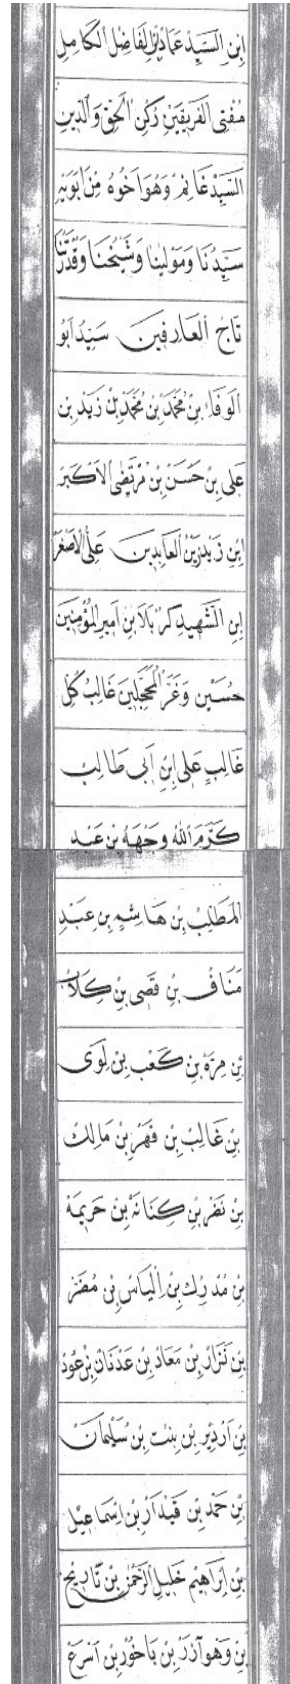 ابن السيد عماد الفاضل الكامل
مفتى الفريقين ركن الحق والدين
السيد غانم وهو اخوه من ابويه
سيدنا ومولينا وشيخنا وقدّتنا
تاج العارفين سيد ابو
الوفا بن محمد بن محمد بن زيد بن
على بن حسن بن مرتضى الاكبر
ابن زيد زين العابدين على الاصغر
ابن الشهيد كربلا بن امير المؤمنين
حسين وغر المحجلين غالب كل
غالب على ابن ابى طالب
كرم الله وجهه بن عبد
المطلب بن هاشم بن عبد
مناف بن قصى بن كلاب
بن مرة بن كعب بن لوى
بن غالب بن فهر بن مالك
بن نضر بن كنانة بن خريمة
بن مدرك بن الياس بن مضر
بن نزار بن معاد بن عدنان بن عود
بن اردير بن بنت بن سليمان
بن حمد بن قيدار بن اسماعيل
بن ابراهيم خليل الرحمن بن تاريخ
بن وهو آزر بن باخور بن اسرع